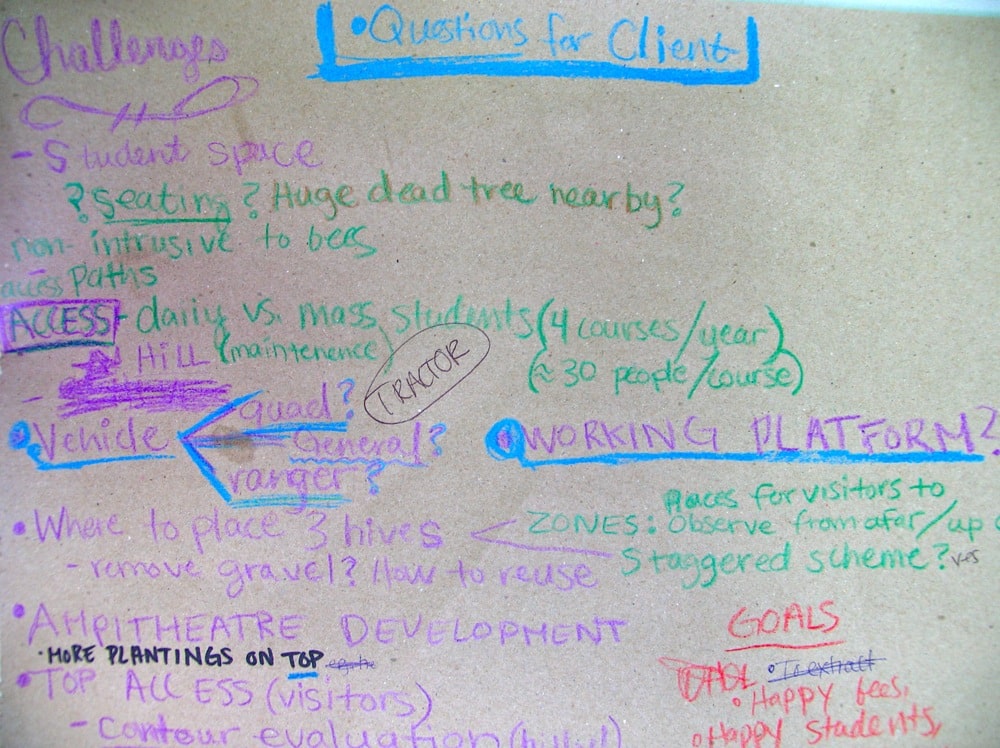 Challenges
• Questions for Client
- Student space
? Seating? Huge dead tree nearby?
non-intrusive to bees
access paths
ACCESS - daily vs. mass students (4 courses/year)
Hill (maintenence) (≈ 30 people/course)
TRACTOR
• Vehicle
quad?
General?
ranger?
• WORKING PLATFORM?
• Where to place 3 hives
- remove gravel? How to reuse
ZONES: Places for visitors to
Observe from afar/up
Staggered scheme? yes
• AMPITHEATRE DEVELOPMENT
• MORE PLANTINGS ON TOP
• TOP ACCESS (visitors)
- contour evaluation
GOALS
• To extract
• Happy bees,
• Happy students,